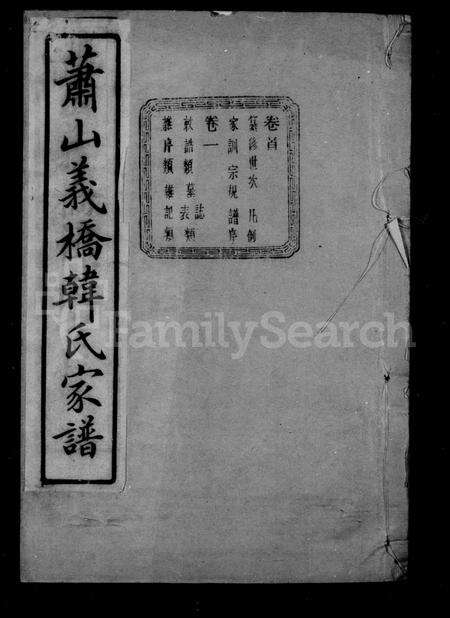 蕭山義橋韓氏家譜
卷首
纂修世次 凡例
家訓 宗規 譜序
卷一
誥類 墓誌表類
雜序類 雜記類
FamilySearch